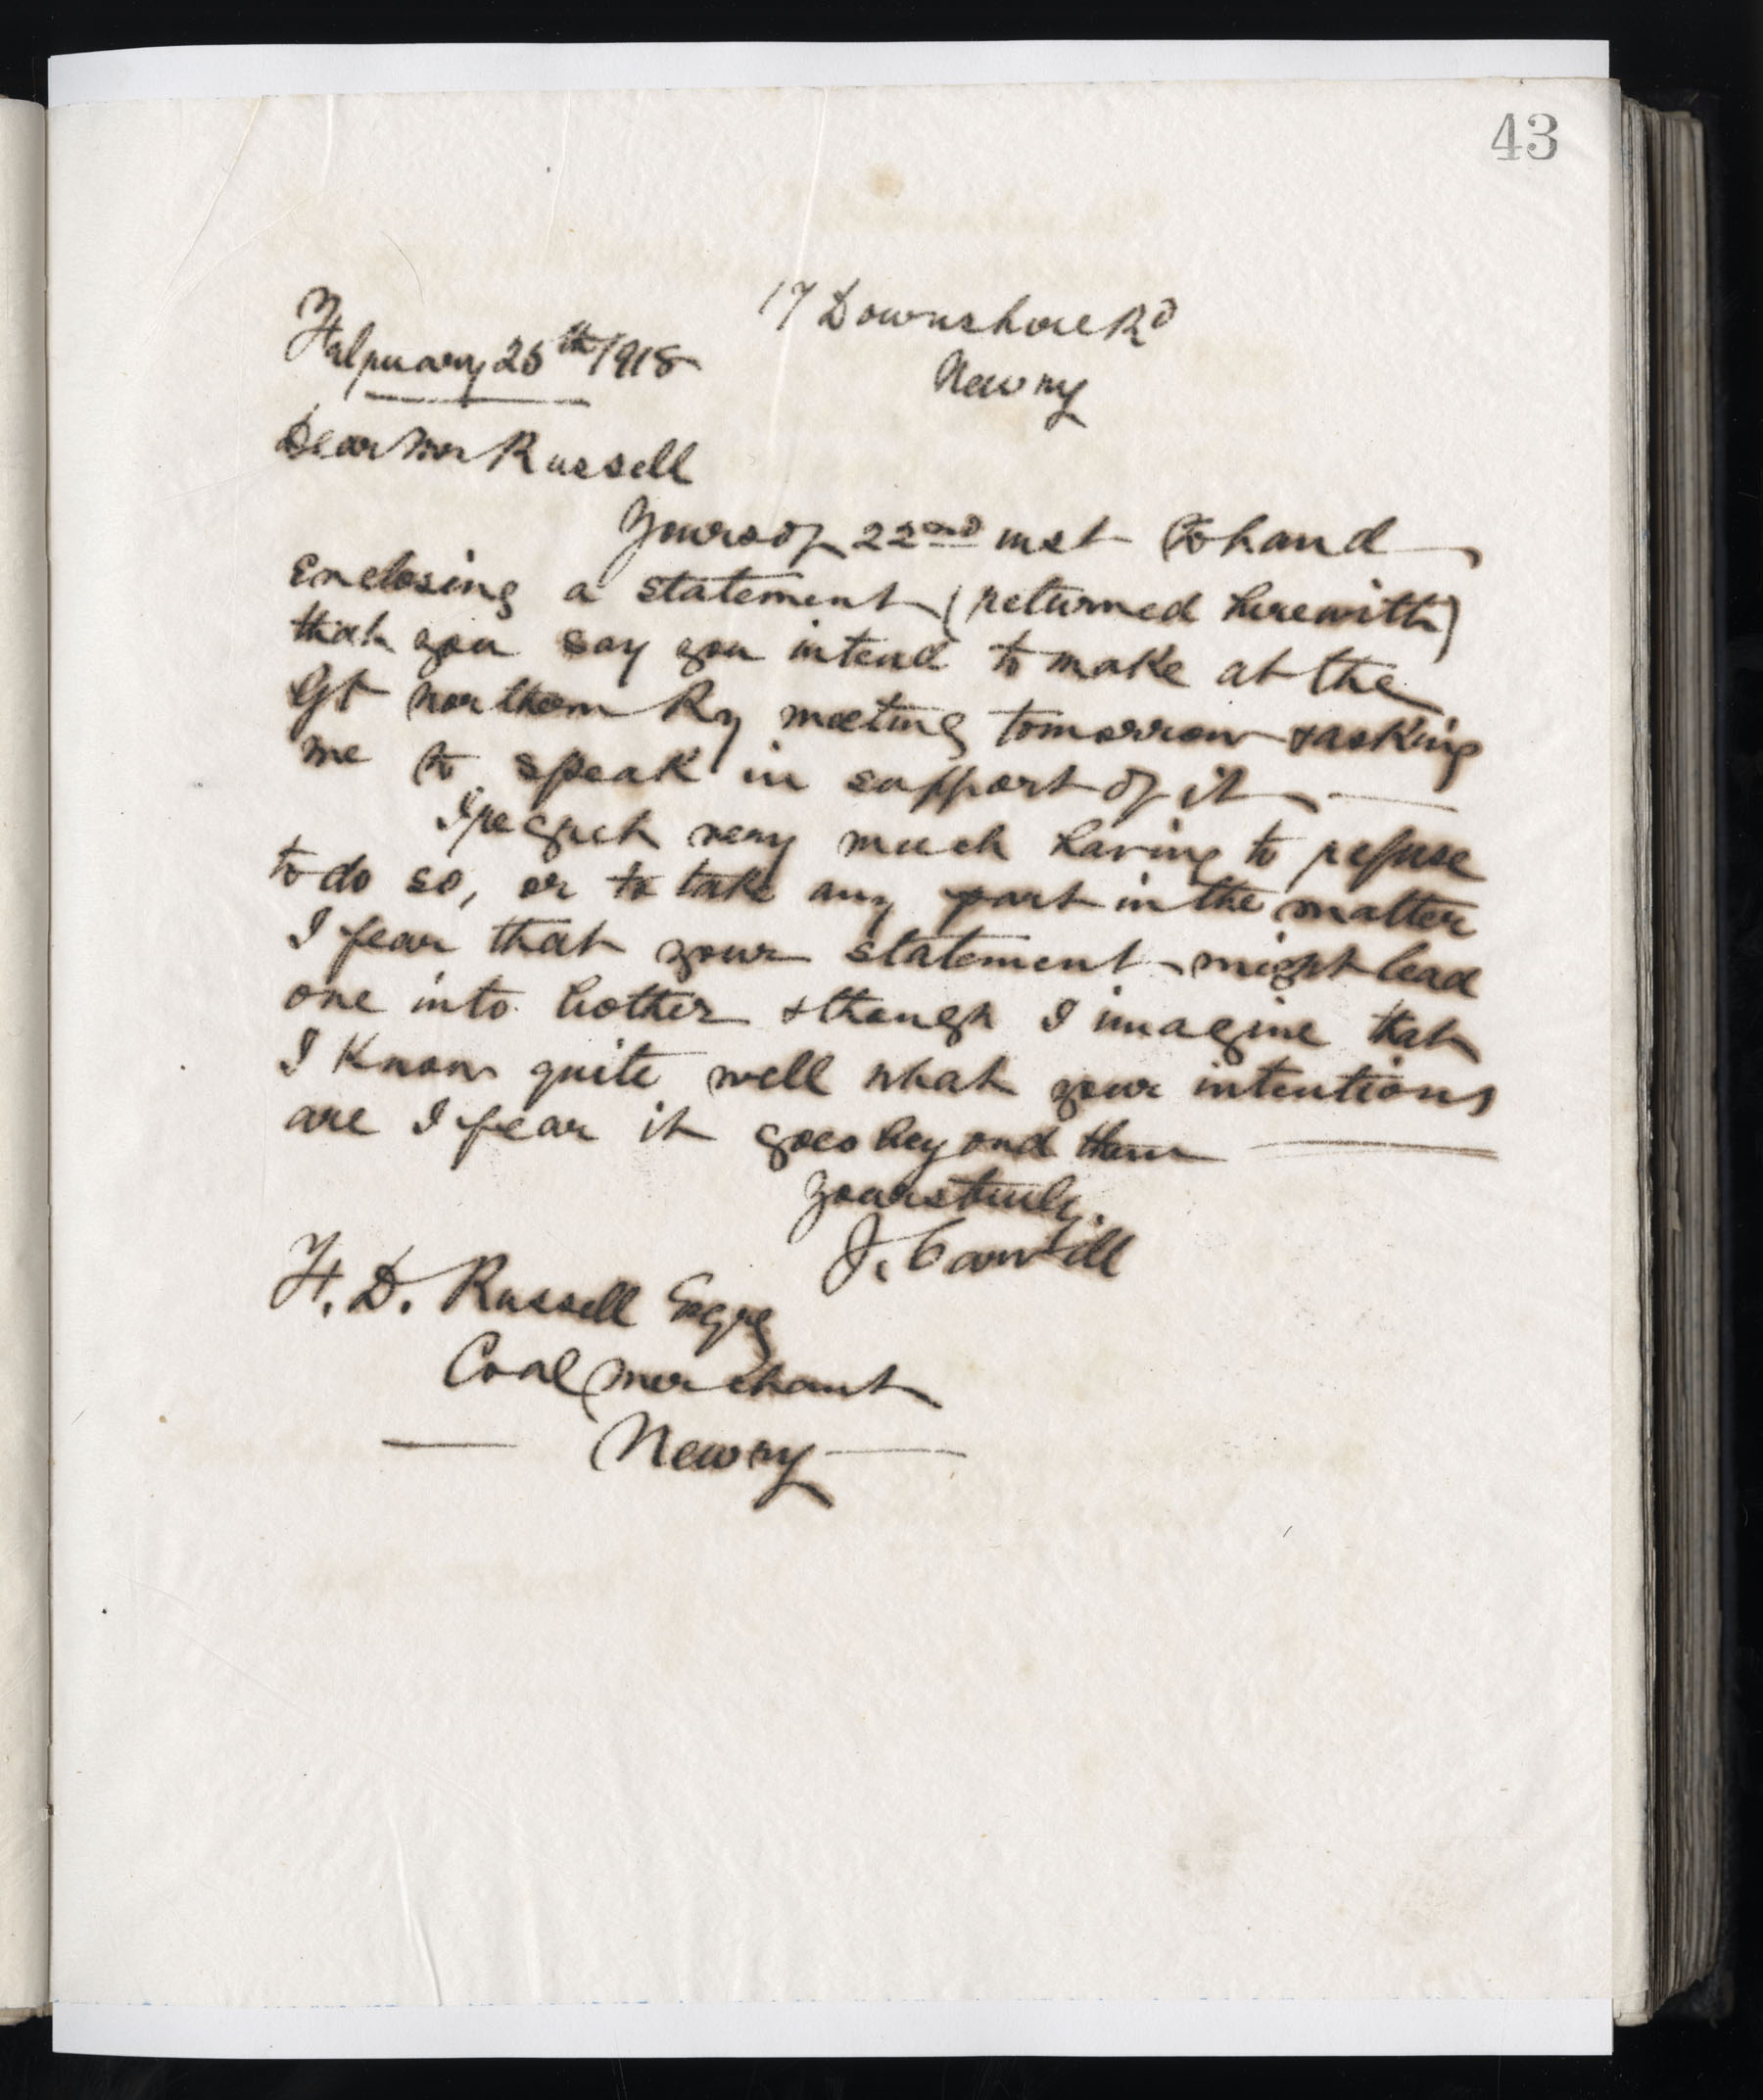 43
17 Downshire Rd
February 25th 1918
Newry
Dear Mr Russell
Yours of 22nd inst to hand
Enclosing a statement (returned herewith)
that you say you intend to make at the
Gt Northern Ry meeting tomorrow & asking
me to speak in support of it
I regret very much having to refuse
to do so, or to take any part in the matter
I fear that your statement might lead
one into bother & though I imagine that
I know quite well what your intentions
are I fear it goes beyond them
Yours truly.
J.
F. D. Russell Esqre
Coal Merchant
Newry